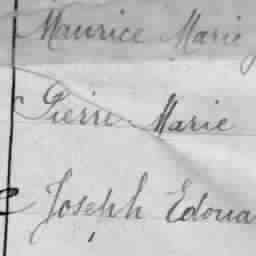 Maurice Marie
Pierre Marie
Joseph Edoua